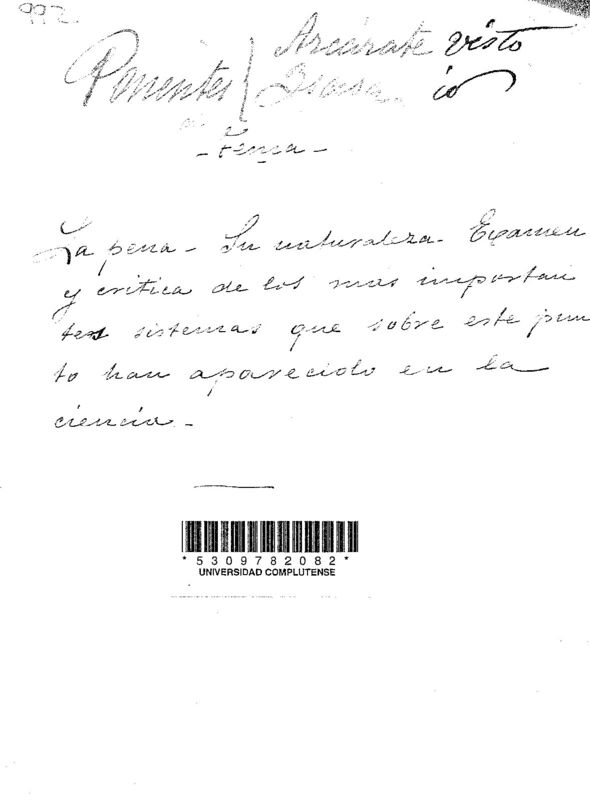 992.
Ponentes Azcárate visto
- Tema -
La pena - Su naturaleza - Examen
y crítica de los mas importan
tes sistemas que sobre este pun
to han aparecido en la
ciencia. -
* 5 3 0 9 7 8 2 0 8 2 *
UNIVERSIDAD COMPLUTENSE